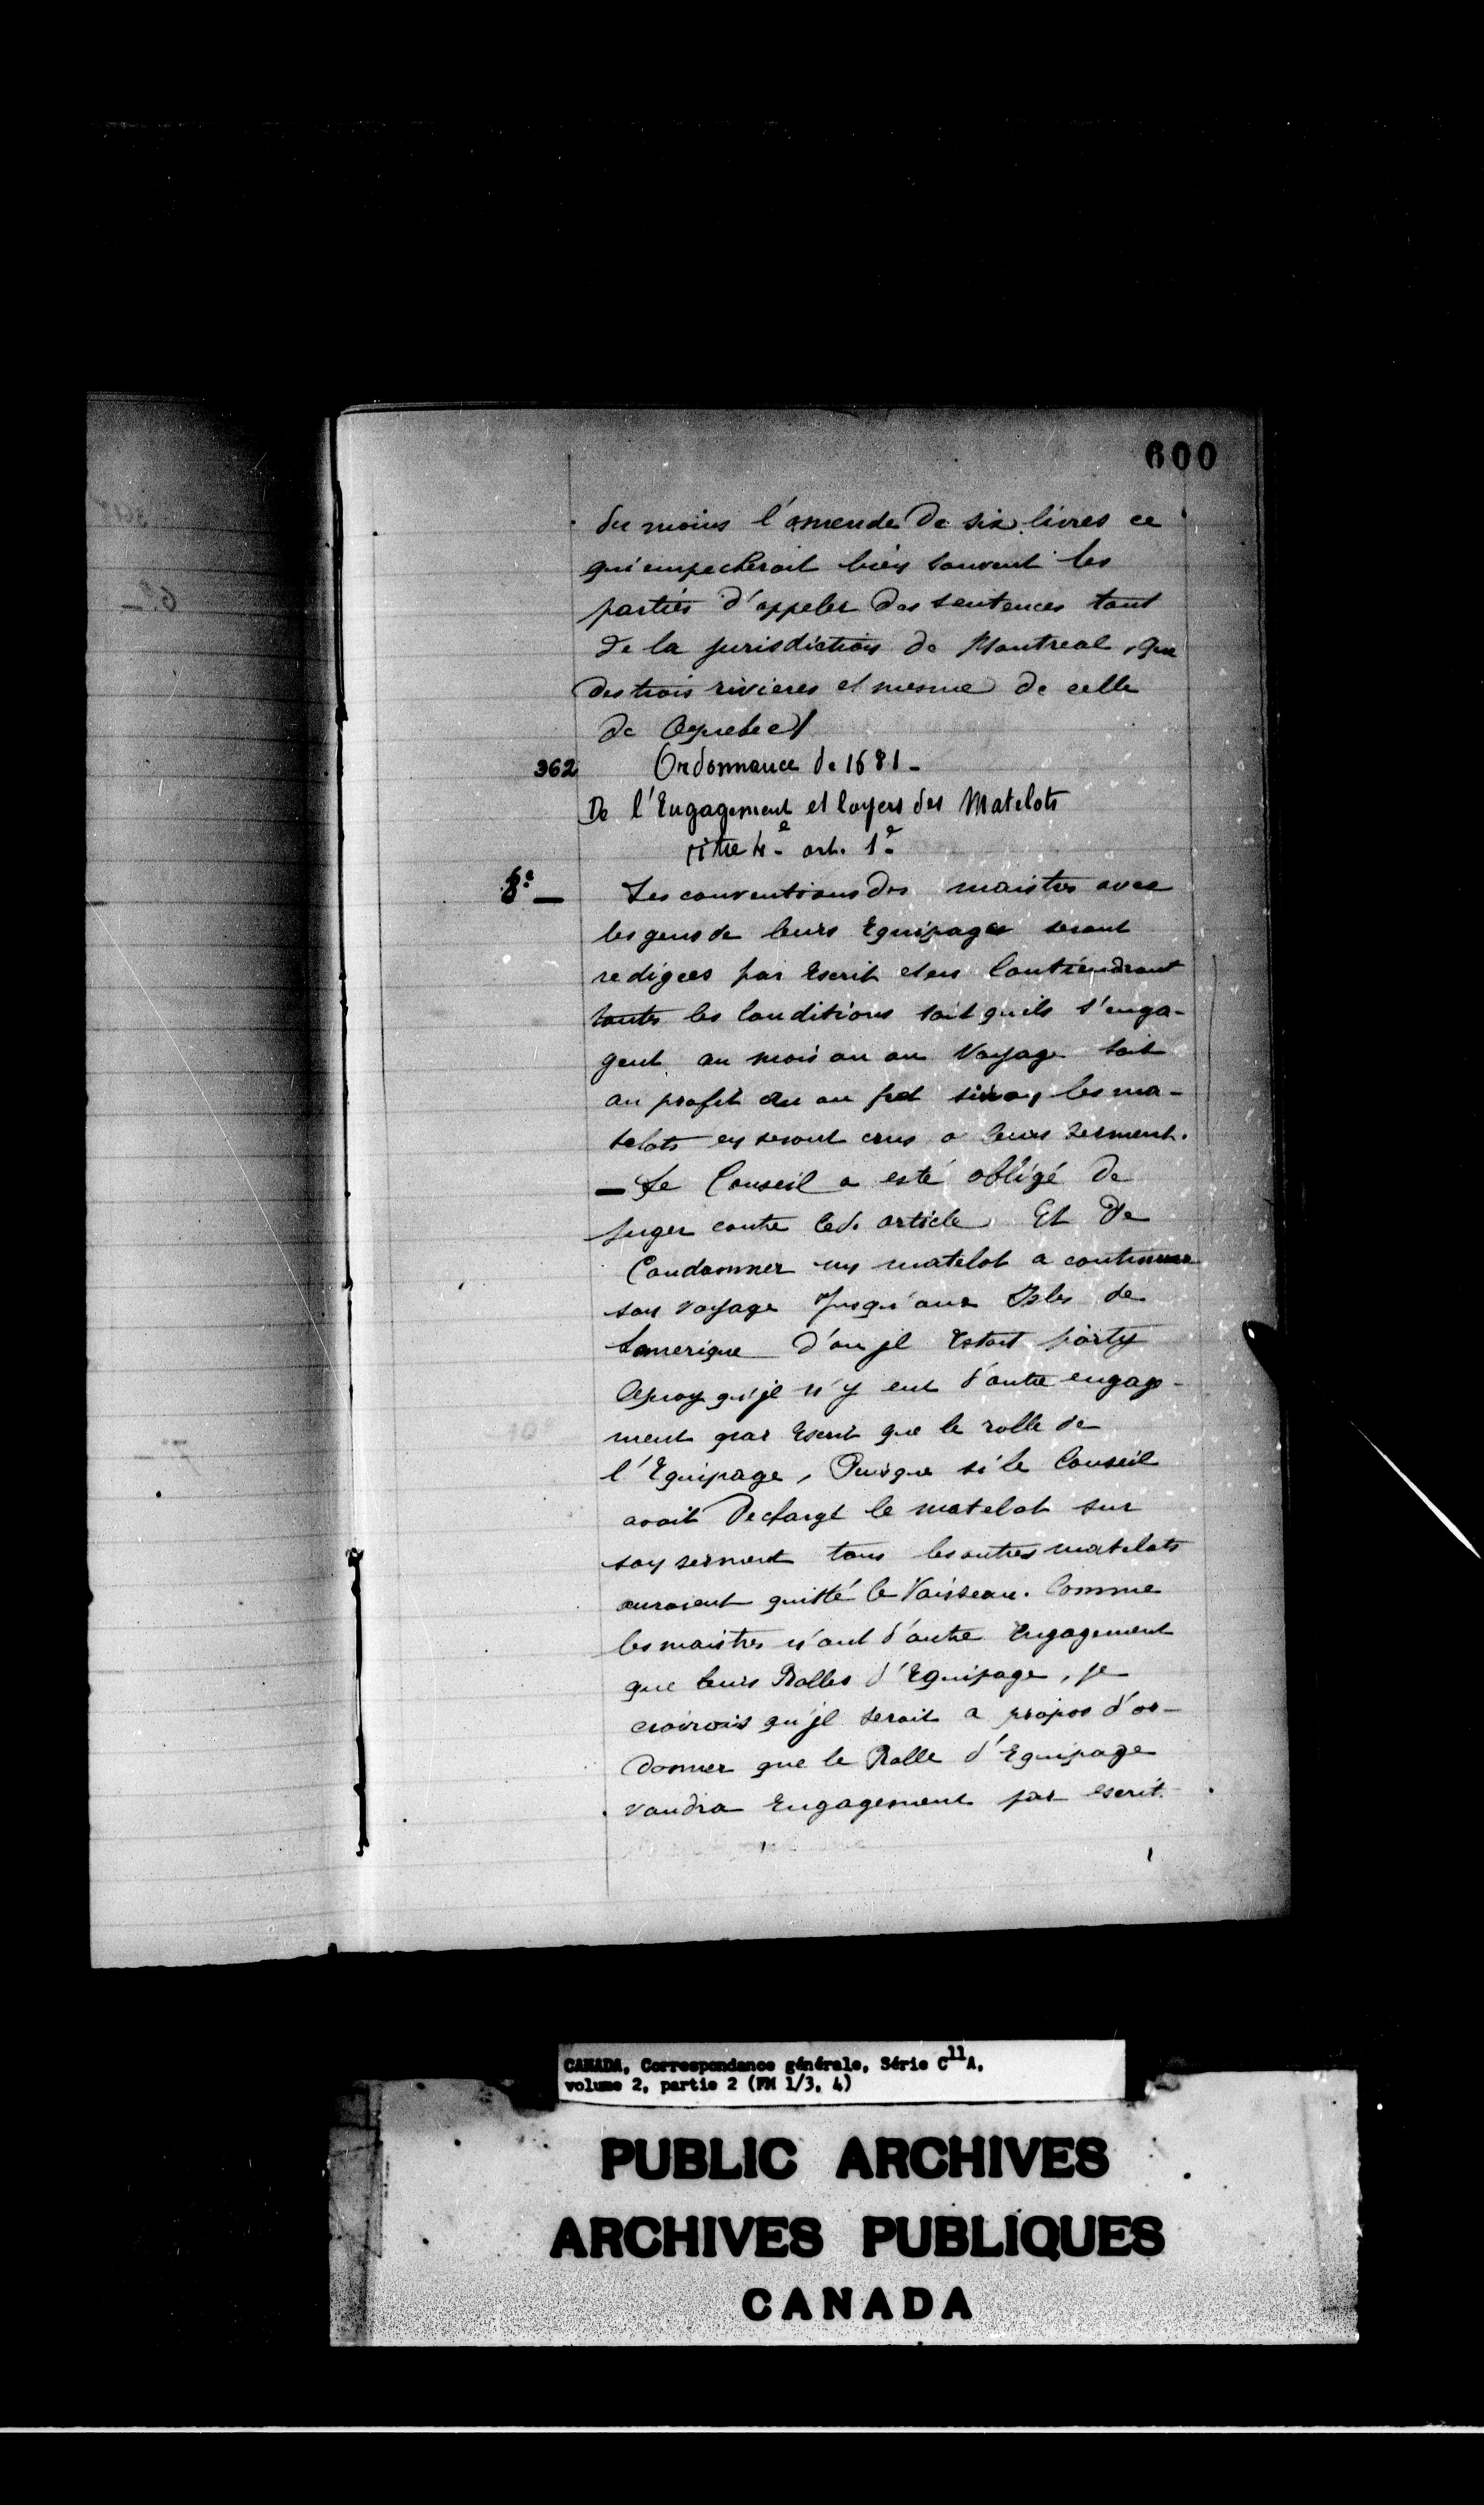 600
du moins l'amende de six livres ce
qui empecheroit bien souvent les
parties d'appeler des sentences tant
de la jurisdiction de Montreal, que
des trois rivieres et mesme de celle
de Quebec/
362 Ordonnance de 1681-
De l'Engagement et loyers des Matelots
titre 4e art. 1e
8e — Les conventions des maistres avec
les gens de leurs Equipages seront
redigees par Escrit et en Contiendront
toutes les Conditions soit quils s'enga-
gent au mois ou au Voyage soit
au profit ou au fret sinon, les ma-
telots en seront crus a leurs serment.
— Le Conseil a esté obligé de
juger contre led. article Et de
Condamner un matelot a continuer
son voyage Jusqu'aux Isles de
Lamerique d'ou jl Estoit party
quoy qu'jl n'y eut d'autre engage-
ment par Escrit que le rolle de
l'Equipage, Puisque si le Conseil
avoit Dechargé le matelot sur
son serment tous les autres matelots
auroient quitté le Vaisseau. Comme
les maistres n'ont d'autre Engagement
que leurs Rolles d'Equipage, je
croirois qu'jl seroit a propos d'or-
donner que le Rolle d'Equipage
vaudra Engagement par escrit.
CANADA, Correspondance générale, Série C11A,
volume 2, partie 2 (FM 1/3, 4)
PUBLIC ARCHIVES
ARCHIVES PUBLIQUES
CANADA